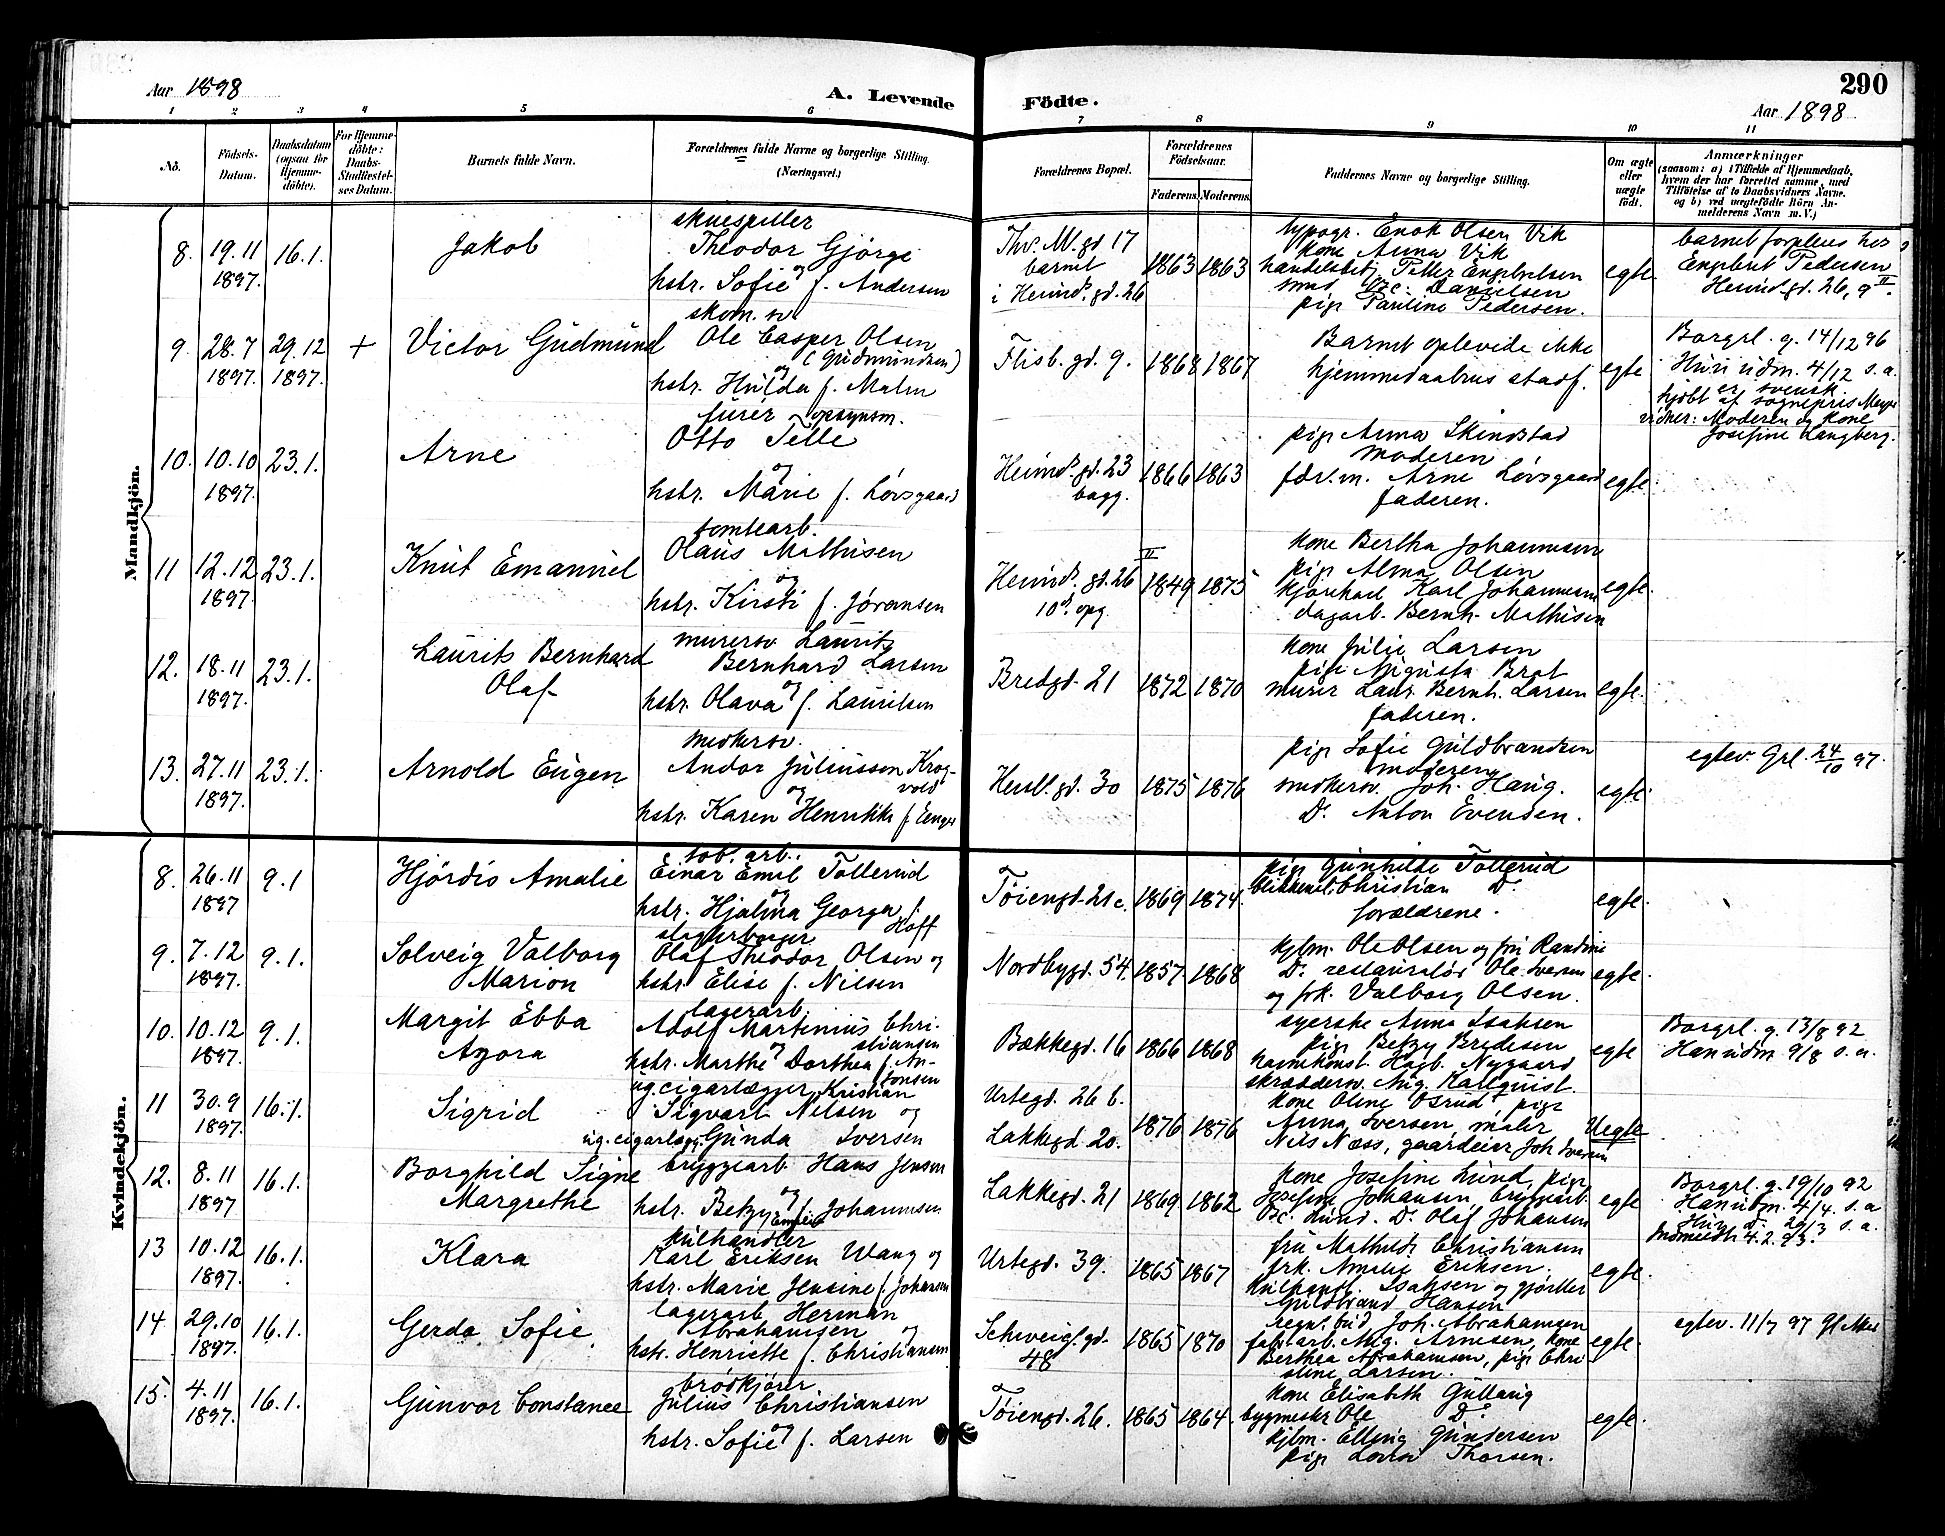 290
Aar 1898
A. Levende Födte.
Aar 1898
1 2 3 4 5 6 7 8 9 10 11
No.
Födsels-Datum.
Daabsdatum (ogsaa for Hjemme-döbte).
For Hjemme-döbte: Daabs-Stadfæstel-ses Datum.
Barnets fulde Navn.
Forældrenes fulde Navne og borgerlige Stilling. (Næringsvei.)
Forældrenes Bopæl.
Forældrenes Födselsaar.
Faderens. Moderens.
Faddernes Navne og borgerlige Stilling.
Om ægte eller uægte födt.
Anmærkninger
(saasom: a) i Tilfælde af Hjemmedaab, hvem der har forrettet samme, med Tilföielse af to Daabsvidners Navne, og b) ved uægtefödte Börn An-melderens Navn m. V.)
Mandkjön.
8. 19.11 1897. 16.1. Jakob
skuespiller
Theodor Gjörge
og
hstr. Sofie f. Andersen
Thv. M. gd 17
barnet
i Heimd. gd. 26
1863 1863
typogr. Enok Olsen Vik
kone Anna Vik
Petter Engebretsen
smed Danielsen
pige Pauline Pedersen.
egte
barnet forpleies hos
Engebret Pedersen
Heimd. gd. 26, 9 II.
9. 28.7 1897. 29.12 1897. + Victor Gudmund
skom. sv
Ole Casper Olsen
(Gudmundsen)
og
hstr. Hulda f. Malm
Flisb. gd. 9. 1868 1867
Barnet oplevede ikke
hjemmedaabens stadf.
egte
Borgrl. g. 14/12 96
Hun udm. 4/12 s. a.
er svensk.
hjdbt af sognepres
vidner: Moderen og kone
Josefine Langberg.
10. 10.10 1897. 23.1. Arne
furér og opsynsm.
Otto Telle
og
hstr. Marie f. Lövsgaard
Heimd. gd. 23
bagg.
1866 1863
pige Anna Skindstad
moderen
Arne Lövsgaard
faderen.
egte.
11 12.12 1897. 23.1. Knut Emanuel
tomtearb.
Olaus Mathisen
og
hstr. Kirsti f. Jöransen
II
Heimd. gd. 26
10 d. opg.
1849 1875
kone Bertha Johannesen
pige Alma Olsen
Karl Johannesen
dagarb. Bernh. Mathisen
egte.
12. 18.11 1897. 23.1. Laurits Bernhard
Olaf
murersv Laurits
Bernhard Larsen
og
hstr. Olava f. Lauritsen
Bredgd. 21 1872 1870
kone Julie Larsen
pige Augusta Brot
murer Laur. Bernh. Larsen
faderen.
egte.
13. 27.11 1897. 23.1. Arnold Eugen
snedkersv.
Andor Juliussen Krog-
vold
og
hstr. Karen Henrikke f Enger
Hersl. gd. 30 1875 1876
pige Sofie Guldbrandsen
moderen
snedkersv. Joh. Haug.
D. Anton Evensen.
egte.
egtev. Grl. 24/10 97.
Kvindekjön.
8. 26.11 1897 9.1 Hjördis Amalie
tob. arb.
Einar Emil Tollerud
og
hstr. Hjalma Georga f.
Hoff
Töiengd. 21 c. 1869 1874.
pige Gunhilde Tollerud
Christian D.
forældrene.
egte.
9. 7.12 1897. 9.1. Solveig Valborg
Marion
Olaf Theodor Olsen og
hstr. Elise f. Nilsen
Nordbygd. 54. 1857 1868
kjbm. Ole Olsen og fru Randine
D. restauratör Ole Iversen
og frk. Valborg Olsen.
egte.
10. 10.12 1897. 9.1. Margit Ebba
Agora
lagerarb.
Adolf Martinius Chri-
stiansen
og
hstr. Marthe Dorthea f. An-
tonsen
Bækkegd. 16 1866 1868
syerske Anna Isaksen
pige Betzy Bredesen
havnekonst. Hagb. Nygaard
skræddersv. Aug. Karlquist.
egte
Borgrl. g. 13/8 92
Han udm. 9/8 s. a.
11 30.9 1897. 16.1. Sigrid
ug. cigarlægger Kristian
Sigvart Nilsen og
ug. cigarlæg. Gunda Iversen
Urtegd. 26 b.
Lakkegd. 20.
1876 1876
kone Oline Osrud pige
Anna Iversen, maler
Nils Næss, gaardeier Joh Iversen
Uegte
12. 8.11 1897 16.1. Borghild Signe
Margrethe
bryggearb. Hans Jensen
og
hstr. Betzy Emilie f. Johannesen
Lakkegd. 21 1869 1862
kone Josefine Lund, pige
Josefine Johansen, bryggarb.
Lund. D. Olaf Johansen
egte
Borgrl. g. 19/10 92
Han udm. 4/4. s. a
Hun D. 29/3 s. a.
Indmeldt 4. 2. 93.
13 10.12 1897. 16.1. Klara
kulhandler
Karl Eriksen Wang og
hstr. Marie Jensine f. Johansen
Urtegd. 39. 1865 1867
fru Mathilde Christiansen
frk. Amalie Eriksen.
kulhandl. Isaksen og gjörtler
Guldbrand Hansen
egte.
14. 29.10 1897. 16.1. Gerda Sofie.
lagerarb Herman
Abrahamsen og
hstr. Henriette f. Christiansen
Schweig. gd.
48
1865 1870
regns. bud Joh. Abrahamsen
fabr. arb. Aug. Arnesen, kone
Berthea Abrahamsen, pige Chri-
stine Larsen.
egte.
egtev. 11/7 97
15. 4.11 1897. 16.1. Gunvor Constance
brödkjörer
Julius Christiansen
og
hstr. Sofie f. Larsen
Töiengd. 26. 1865 1864.
kone Elisabeth Gullaug
bygmestr Ole D.
kjbm. Elling Gundersen
pige Lovisa Thorsen.
egte.